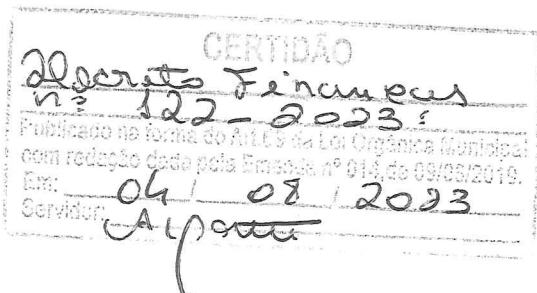 CERTIDÃO
Decreto Financeiro
nº 122-2023:
Publicado na forma do Art. da Lei Orgânica Municipal
com redação dada pela Emenda nº 014, de 09/09/2019.
Em: 04 / 08 / 2023
Servidor: